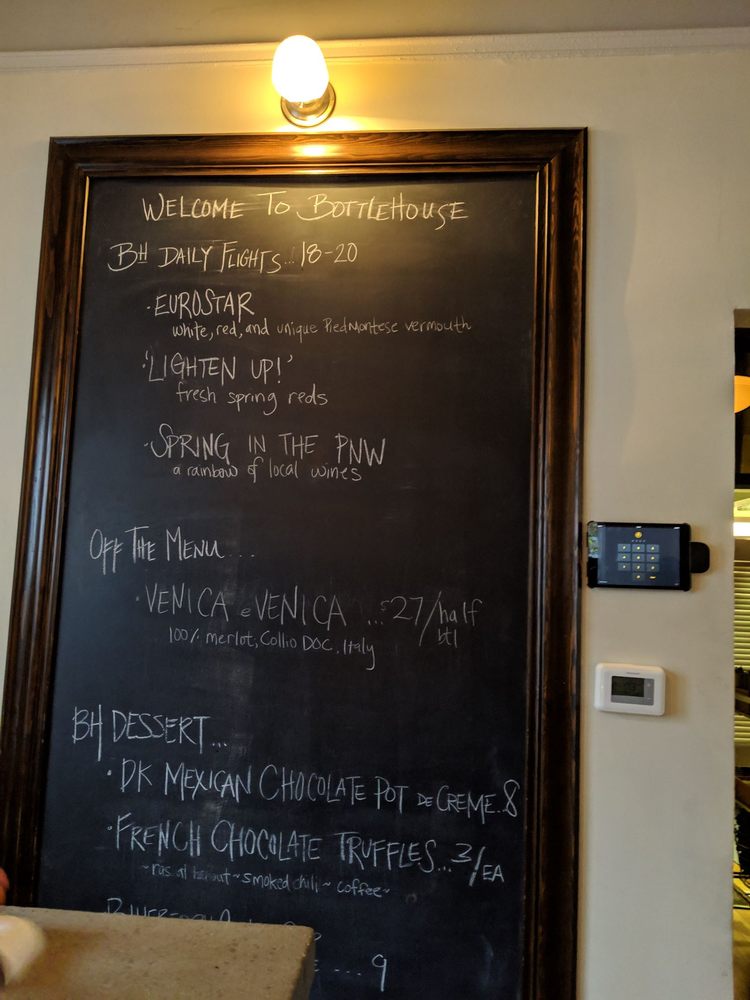 WELCOME TO BOTTLEHOUSE
BH DAILY FLIGHTS...18-20
·EUROSTAR
white, red, and unique Piedmontese vermouth
·'LIGHTEN UP!'
fresh spring reds
·SPRING IN THE PNW
a rainbow of local wines
OFF THE MENU...
·VENICA e VENICA ...27/half btl
100% merlot, Collio DOC, Italy
BH DESSERT...
·DK MEXICAN CHOCOLATE POT DE CREME..8
·FRENCH CHOCOLATE TRUFFLES...3/EA
~ras al hanout~smoked chili~coffee~
...9